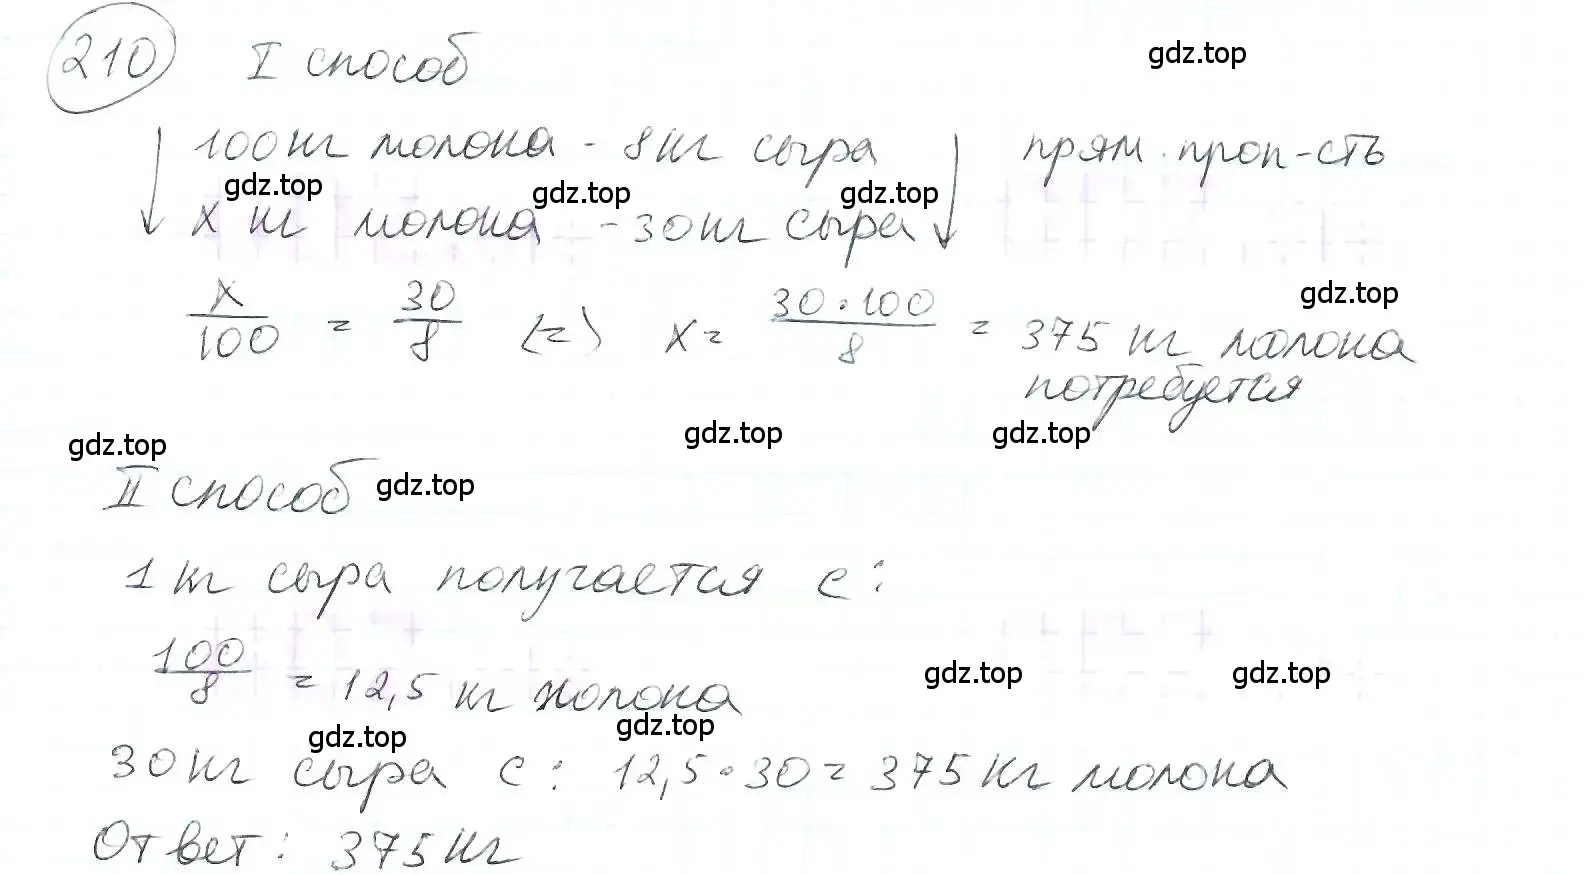 210 I способ
gdz.top
↓ 100 кг молока - 8 кг сыра ↓ прям. проп-сть
gdz.top gdz.top gdz.top
x кг молока - 30 кг сыра
x/100 = 30/8 (=) x = 30·100/8 = 375 кг молока
gdz.top
потребуется
gdz.top gdz.top gdz.top
II способ gdz.top
1 кг сыра получается с:
100/8 = 12,5 кг молока
gdz.top gdz.top
gdz.top gdz.top
30 кг сыра с: 12,5·30 = 375 кг молока
Ответ: 375 кг